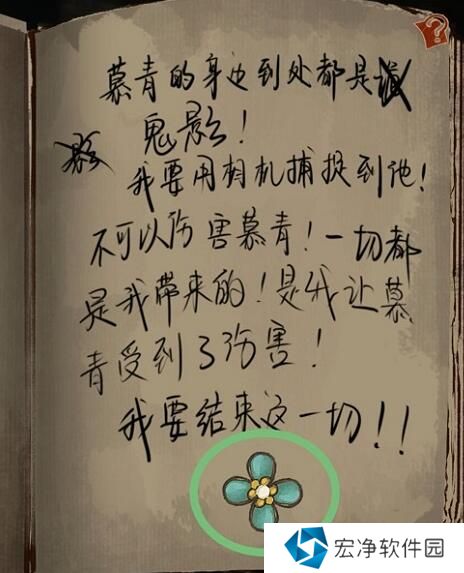 慕青的身边到处都是
鬼影！
我要用相机捕捉到他！
不可以伤害慕青！一切都
是我带来的！是我让慕
青受到了伤害！
我要结束这一切！！
?
宏净软件园